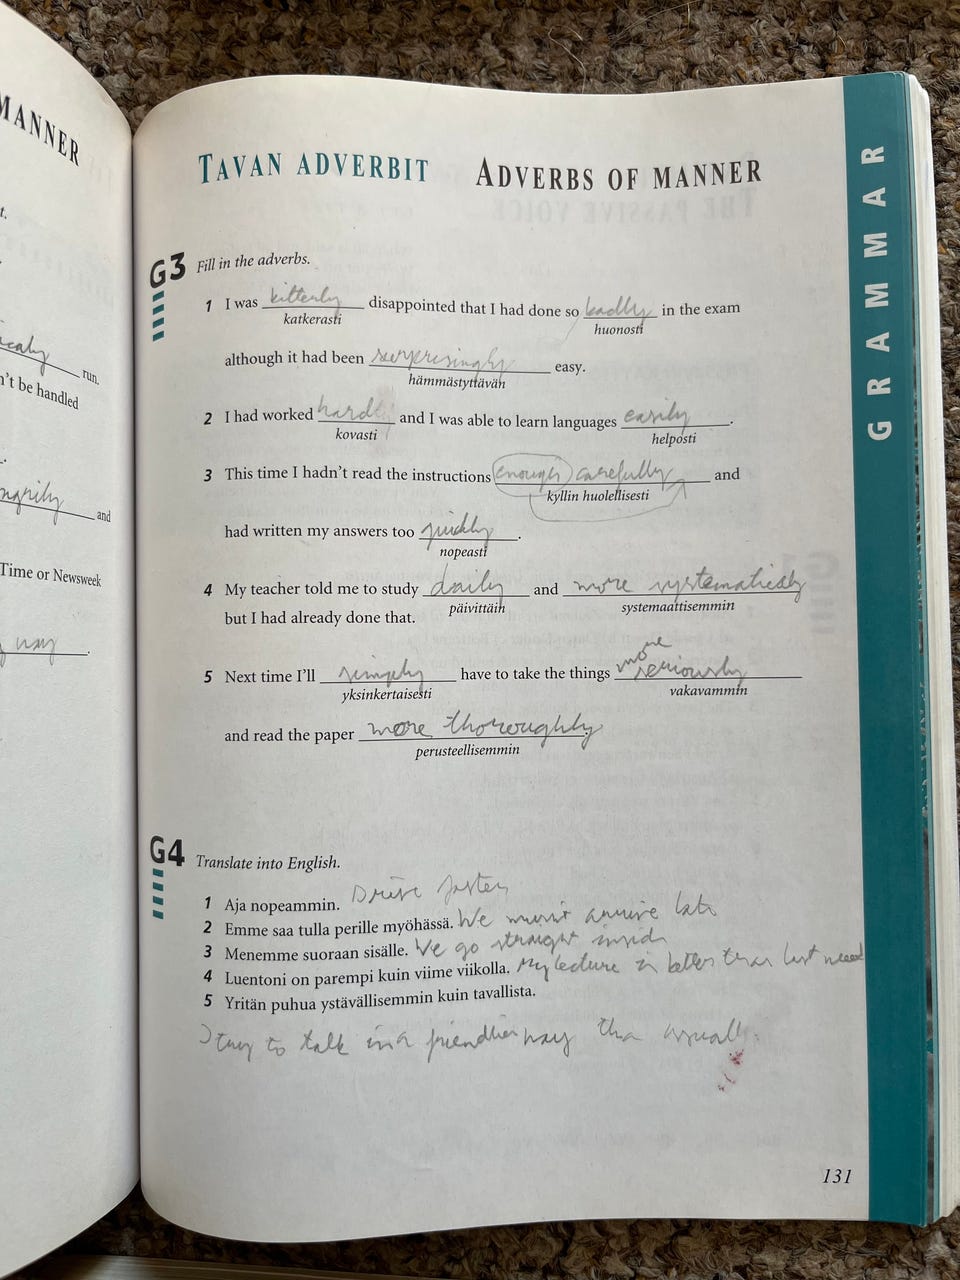 MANNER
t.
run.
n't be handled
and
Time or Newsweek
way
TAVAN ADVERBIT ADVERBS OF MANNER
GRAMMAR
G3 Fill in the adverbs.
1 I was bitterly disappointed that I had done so badly in the exam
katkerasti huonosti
although it had been surprisingly easy.
hämmästyttävän
2 I had worked hard and I was able to learn languages easily.
kovasti helposti
3 This time I hadn't read the instructions enough carefully and
kyllin huolellisesti
had written my answers too quickly.
nopeasti
4 My teacher told me to study daily and more systematicaly
päivittäin systemaattisemmin
but I had already done that.
more
5 Next time I'll simply have to take the things seriously
yksinkertaisesti vakavammin
and read the paper more thoroughly
perusteellisemmin
G4 Translate into English.
1 Aja nopeammin. Drive faster
2 Emme saa tulla perille myöhässä. We musn't arrive late
3 Menemme suoraan sisälle. We go straight inside
4 Luentoni on parempi kuin viime viikolla. My lecture is better than last
5 Yritän puhua ystävällisemmin kuin tavallista.
I try to talk in a friendlier way than usually.
131